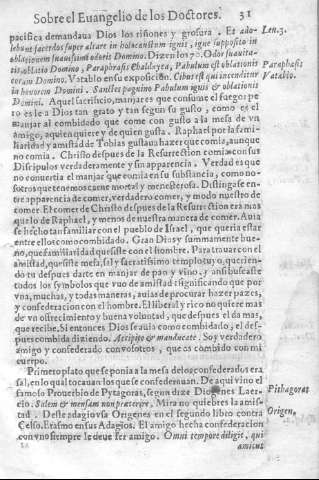 Sobre el Euangelio de los Doctores. 31
pacifica demandaua Dios los riñones y grosura. Et ado- Leu.3.
lebunt jacerdos super altare in holocaustum ignis, igne supposito in
oblationem suauissimi odoris Domino. Dizen los 70. Odor suauita-
tis oblatio Domino, Paraphrasis Chaldayca, Pabulum est oblationis Paraphasis
coram Domino. Vatablo en su exposicion. Cibus est qui incenditur Vatablo.
in honorem Domini. Santles pagnino Pabulum ignis & oblationis
Domini. Aquel sacrificio, manjares que consume el fuego: pe
ro es le a Dios tan grato y tan segun su gusto, como es el
manjar al combidado que come con gusto a la mesa de vn
amigo, aquien quiere y de quien gusta. Raphael por la fami-
liaridad y amistad de Tobias gustaua hazer que comia, aunque
no comia. Christo despues de la Resurection comia con sus
Discipulos verdaderamente y sin apparencia. Verdad es que
no conuertia el manjar que comia en su substancia, como no-
sotros que tenemos carne mortal y menesterosa. Distingase en-
tre apparencia de comer, verdadero comer, y modo nuestro de
comer. El comer de Christo despues de la Resurection era mas
que lo de Raphael, y menos de nuestra manera de comer. Auia
se hecho tan familiar con el pueblo de Israel, que queria estar
entre ellos como combidado. Gran Dios y summamente bue-
no, que familiaridad quisiste con el hombre. Para trauar con el
amistad, quesiste mesa, sal y sacratissimo templo tuyo, querien-
do tu despues darte en manjar de pan y vino, y ansi buscaste
todos los symbolos que vuo de amistad significando que por
vna, muchas, y todas maneras, auias de procurar hazer pazes,
y confederacion con el hombre. El liberal y rico no quiere mas
de vn ofrescimiento y buena voluntad, que despues el da mas,
que recibe. Si entonces Dios se auia como combidado, el des-
pues combida diziendo. Accipite & manducate. Soy verdadero
amigo y confederado con vosotros, que os combido con mi
cuerpo.
Primero plato que se ponia a la mesa de los confederados era
sal, en lo qual tocauan los que se confederauan. De aqui vino el
famoso Prouerbio de Pytagoras, segun dize Diogenes Laer- Pithagoras
cio. Salem & mensam non praeterire. Mira no quiebres la amis-
tad. Deste adagio vsa Origenes en el segundo libro contra Origen.
Celso. Erasmo en sus Adagios. El amigo hecha confederacion
con vno siempre le deue ser amigo. Omni tempore diligit, qui
amicus